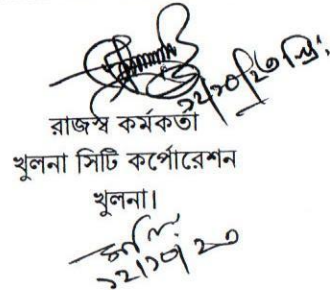 ১২/১০/২৩ খ্রি:
রাজস্ব কর্মকর্তা
খুলনা সিটি কর্পোরেশন
খুলনা।
১২/১০/২৩